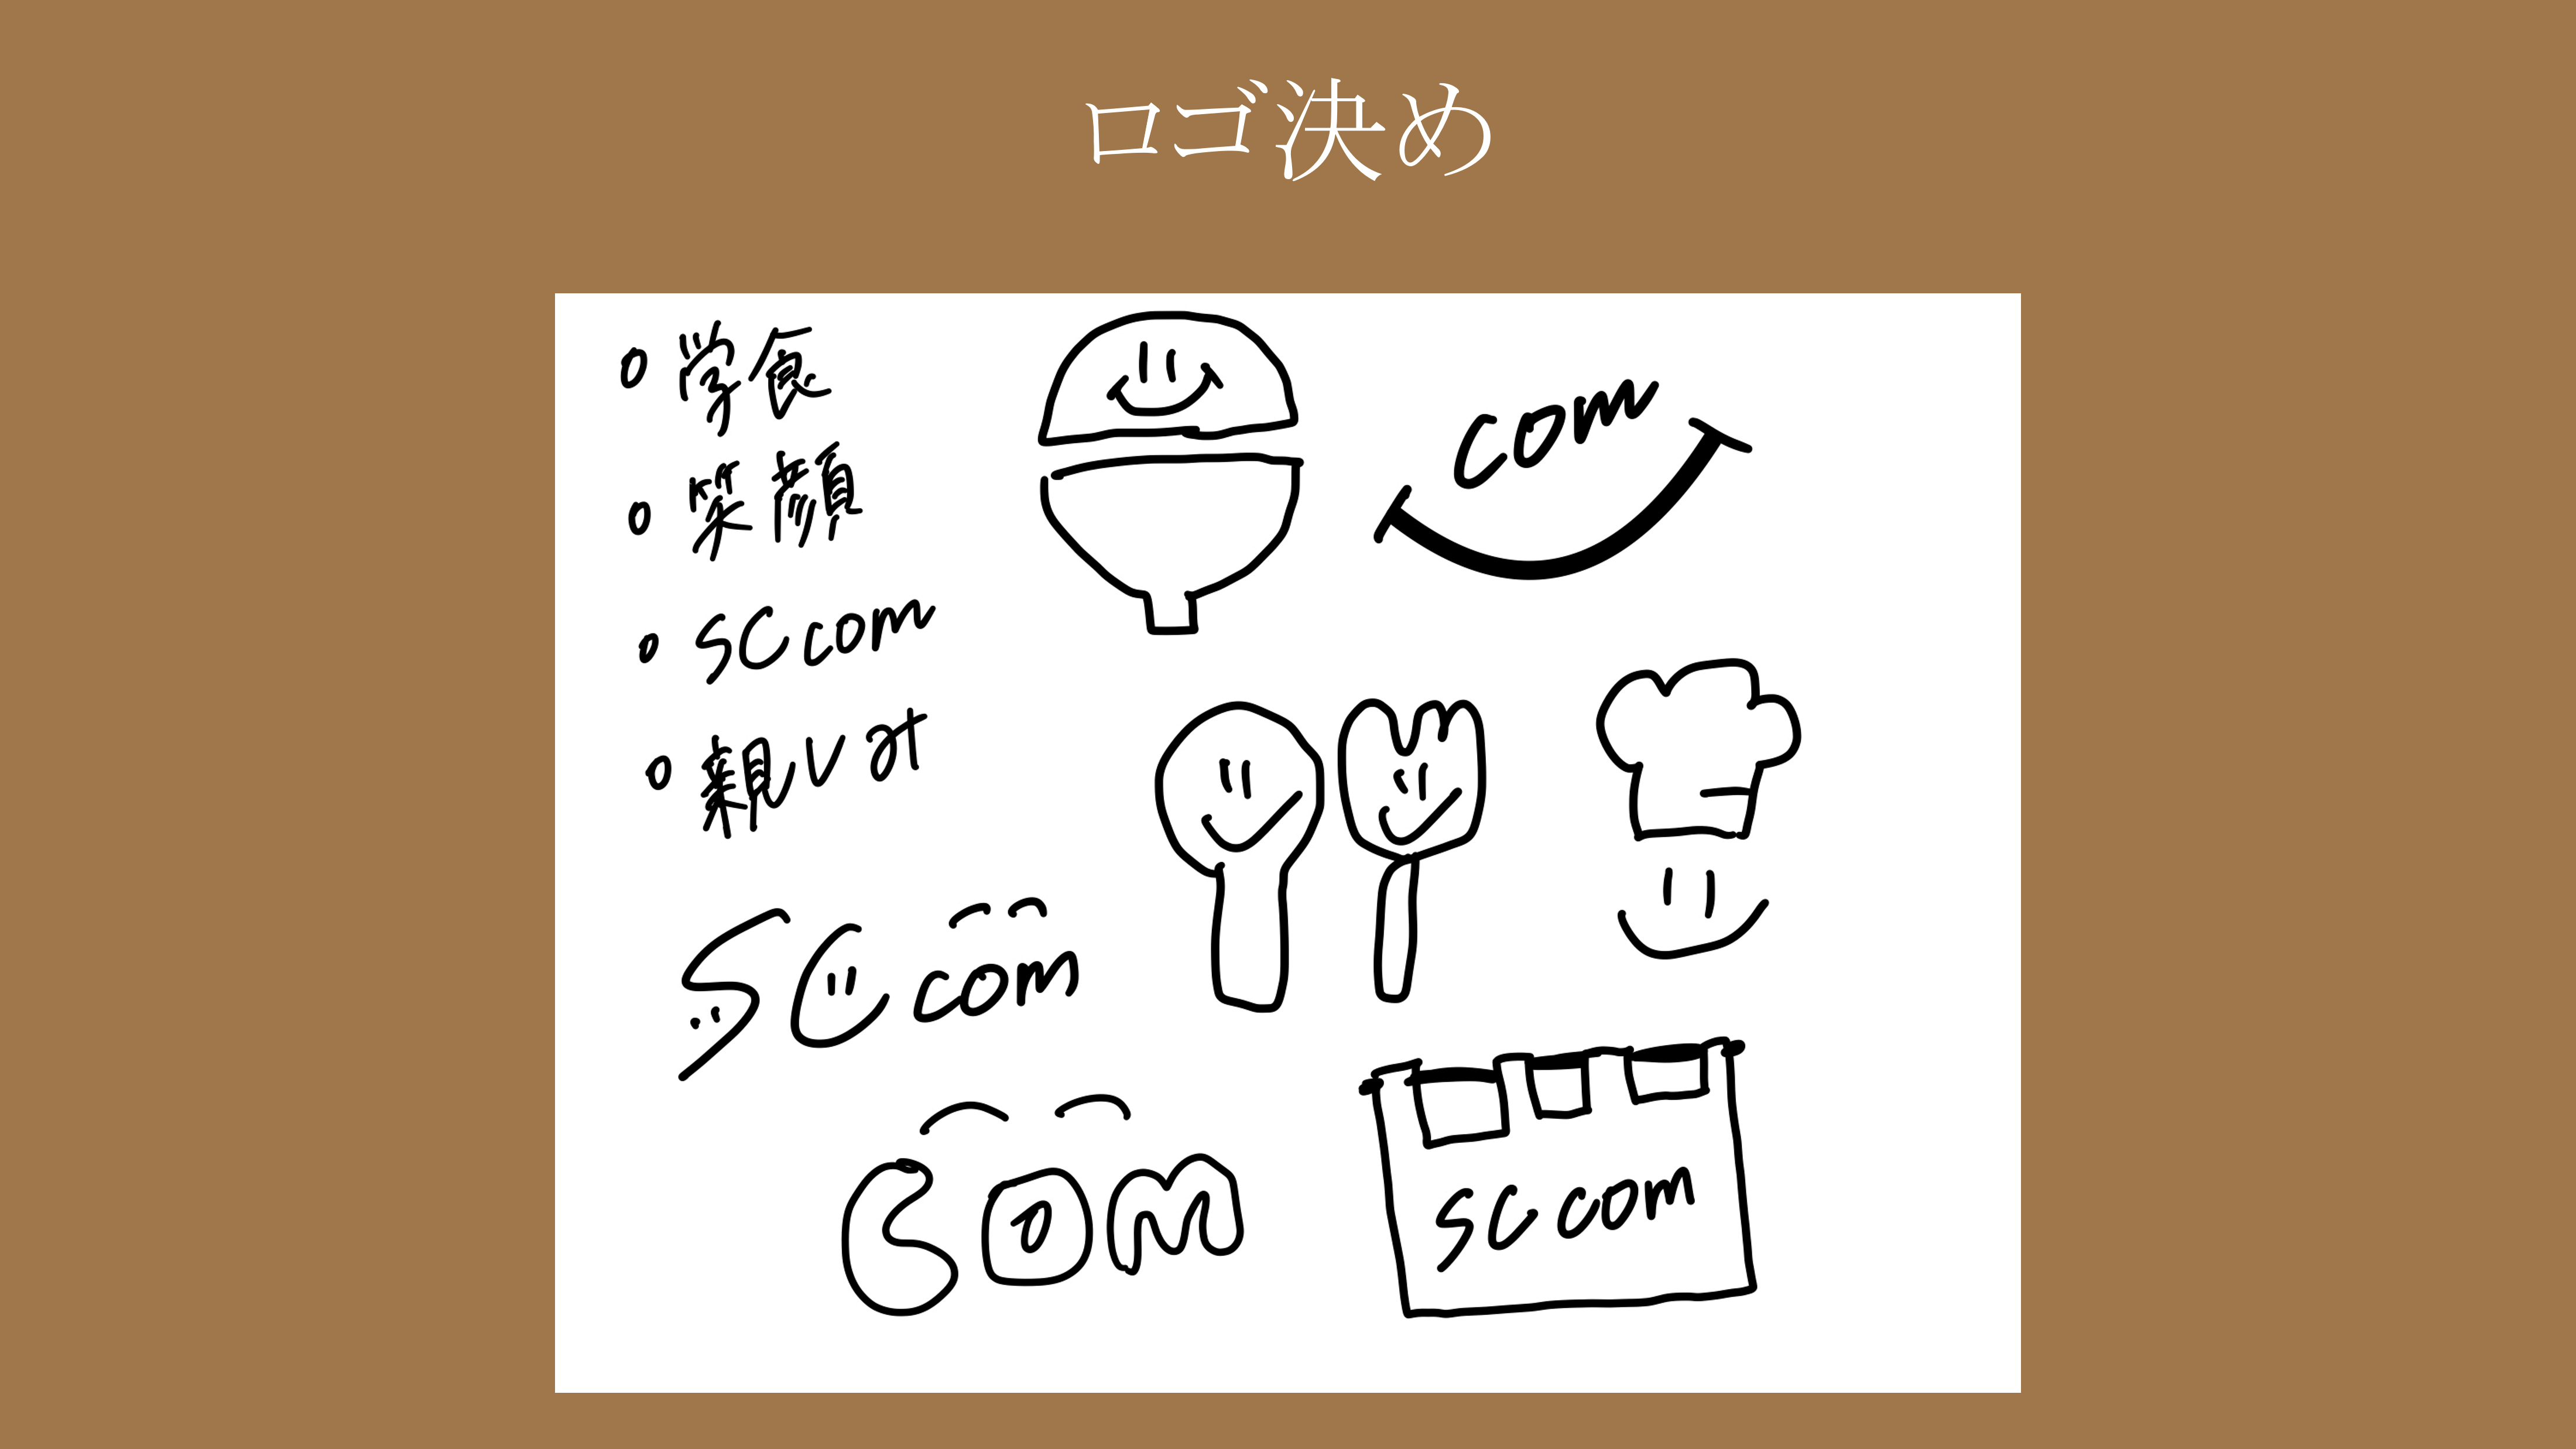 ロゴ決め
学食
笑顔
SC com
親しみ
com
SC com
com
SC com